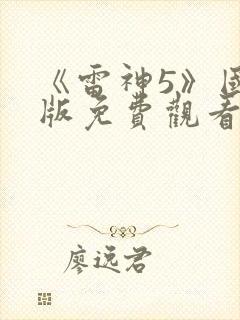 《雷神5》国
版免費觀看
廖远君